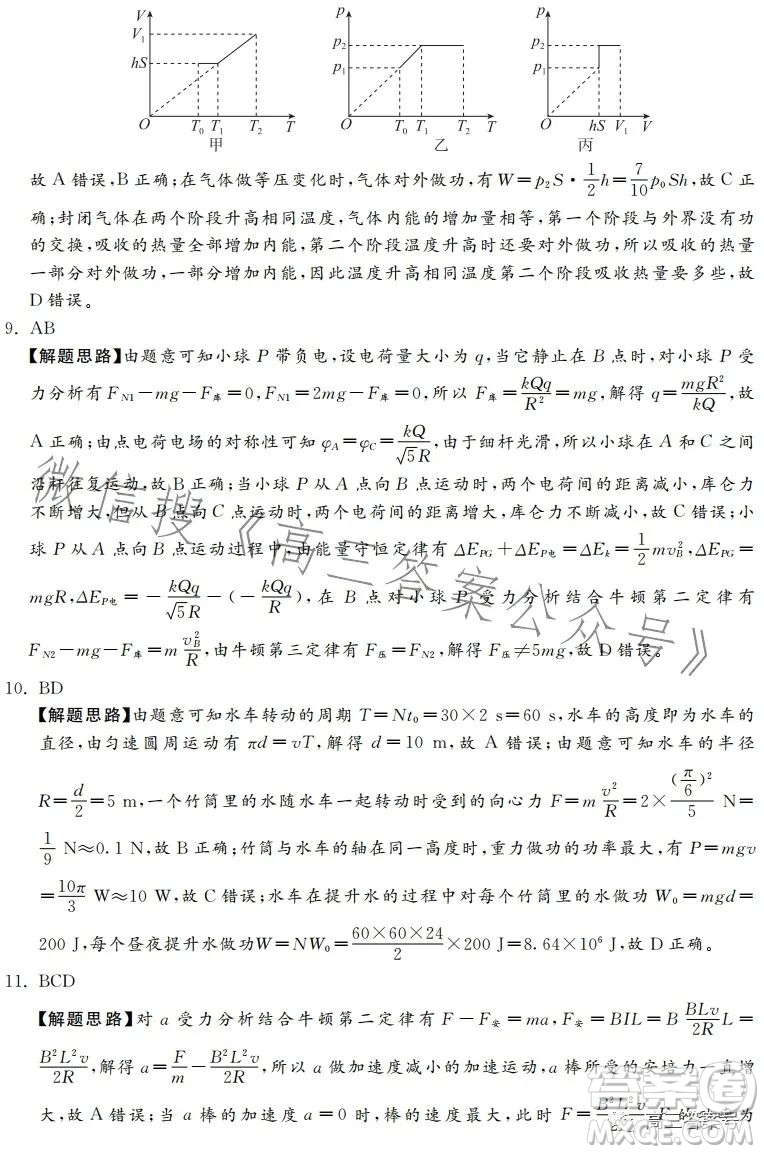 V V₁ hS O T₀ T₁ T₂ T 甲
p p₂ p₁ O T₀ T₁ T₂ T 乙
p p₂ p₁ O hS V₁ V 丙
故 A 错误,B 正确;在气体做等压变化时,气体对外做功,有 W=p₂S·\frac{1}{2}h=\frac{7}{10}p₀Sh,故 C 正
确;封闭气体在两个阶段升高相同温度,气体内能的增加量相等,第一个阶段与外界没有功
的交换,吸收的热量全部增加内能,第二个阶段温度升高时还要对外做功,所以吸收的热量
一部分对外做功,一部分增加内能,因此温度升高相同温度第二个阶段吸收热量要多些,故
D 错误。
9. AB
【解题思路】由题意可知小球 P 带负电,设电荷量大小为 q,当它静止在 B 点时,对小球 P 受
力分析有 F_{N1}-mg-F_{库}=0,F_{N1}=2mg-F_{库}=0,所以 F_{库}=\frac{kQq}{R²}=mg,解得 q=\frac{mgR²}{kQ},故
A 正确;由点电荷电场的对称性可知 φ_A=φ_C=\frac{kQ}{\sqrt{5}R},由于细杆光滑,所以小球在 A 和 C 之间
沿杆往复运动,故 B 正确;当小球 P 从 A 点向 B 点运动时,两个电荷间的距离减小,库仑力
不断增大,但从 B 点向 C 点运动时,两个电荷间的距离增大,库仑力不断减小,故 C 错误;小
球 P 从 A 点向 B 点运动过程中,由能量守恒定律有 ΔE_{PG}+ΔE_{P电}=ΔE_k=\frac{1}{2}mv_B²,ΔE_{PG}=
mgR,ΔE_{P电}=-\frac{kQq}{\sqrt{5}R}-(-\frac{kQq}{R}),在 B 点对小球 P 受力分析结合牛顿第二定律有
F_{N2}-mg-F_{库}=m\frac{v_B²}{R},由牛顿第三定律有 F_{压}=F_{N2},解得 F_{压}≠5mg,故 D 错误。
10. BD
【解题思路】由题意可知水车转动的周期 T=Nt₀=30×2 s=60 s,水车的高度即为水车的
直径,由匀速圆周运动有 πd=vT,解得 d=10 m,故 A 错误;由题意可知水车的半径
R=\frac{d}{2}=5 m,一个竹筒里的水随水车一起转动时受到的向心力 F=m\frac{v²}{R}=2×\frac{(\frac{π}{6})²}{5} N=
\frac{1}{9} N≈0.1 N,故 B 正确;竹筒与水车的轴在同一高度时,重力做功的功率最大,有 P=mgv
=\frac{10π}{3} W≈10 W,故 C 错误;水车在提升水的过程中对每个竹筒里的水做功 W₀=mgd=
200 J,每个昼夜提升水做功W=NW₀=\frac{60×60×24}{2}×200 J=8.64×10⁶ J,故 D 正确。
11. BCD
【解题思路】对 a 受力分析结合牛顿第二定律有 F-F_{安}=ma,F_{安}=BIL=B\frac{BLv}{2R}L=
\frac{B²L²v}{2R},解得 a=\frac{F}{m}-\frac{B²L²v}{2R},所以 a 做加速度减小的加速运动,a 棒所受的安培力一直增
大,故 A 错误;当 a 棒的加速度 a=0 时,棒的速度最大,此时 F=\frac{B²L²v}{2R}
微信搜《高三答案公众号》
答案圈